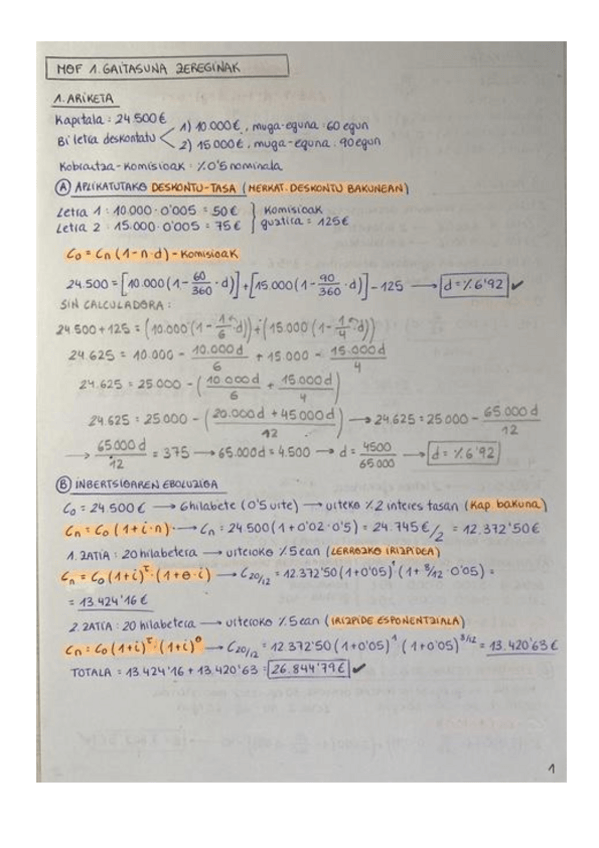 MOF 1. GAITASUNA ZEREGINAK
1. ARIKETA
Kapitala: 24.500€
Bi letra deskontatu
1) 10.000€, muga-eguna: 60 egun
2) 15.000€, muga-eguna: 90 egun
Kobrantza-komisioak: %0'5 nominala
A) APLIKATUTAKO DESKONTU-TASA (MERKAT. DESKONTU BAKUNEAN)
Letra 1: 10.000 · 0'005 = 50€
Letra 2: 15.000 · 0'005 = 75€
Komisioak
guztira = 125€
C₀ = Cn (1-n·d) - Komisioak
24.500 = [10.000(1 - 60/360 · d)] + [15.000(1 - 90/360 · d)] - 125 → d = %6'92 ✓
SIN CALCULADORA:
24.500 + 125 = (10.000(1 - 1/6 · d)) + (15.000(1 - 1/4 · d))
24.625 = 10.000 - 10.000d/6 + 15.000 - 15.000d/4
24.625 = 25.000 - (10.000d/6 + 15.000d/4)
24.625 = 25.000 - (20.000d + 45.000d/12) → 24.625 = 25.000 - 65.000d/12
→ 65.000d/12 = 375 → 65.000d = 4.500 → d = 4500/65.000 → d = %6'92
B) INBERTSIOAREN EBOLUZIOA
C₀ = 24.500€ → 6 hilabete (0'5 urte) → urteko %2 interes tasan (Kap bakuna)
Cn = C₀(1+i·n) → Cn = 24.500(1+0'02·0'5) = 24.745€/2 = 12.372'50€
1. ZATIA: 20 hilabetera → urteroko %5ean (LERROZKO IRIZPIDEA)
Cn = C₀(1+i)^τ · (1+θ·i) → C20/12 = 12.372'50(1+0'05)¹(1+ 8/12 · 0'05) =
= 13.424'16€
2. ZATIA: 20 hilabetera → urteroko %5ean (IRIZPIDE ESPONENTZIALA)
Cn = C₀(1+i)^τ · (1+i)^θ → C20/12 = 12.372'50(1+0'05)¹ (1+0'05)^8/12 = 13.420'63€
TOTALA = 13.424'16 + 13.420'63 = 26.844'79€ ✓
1